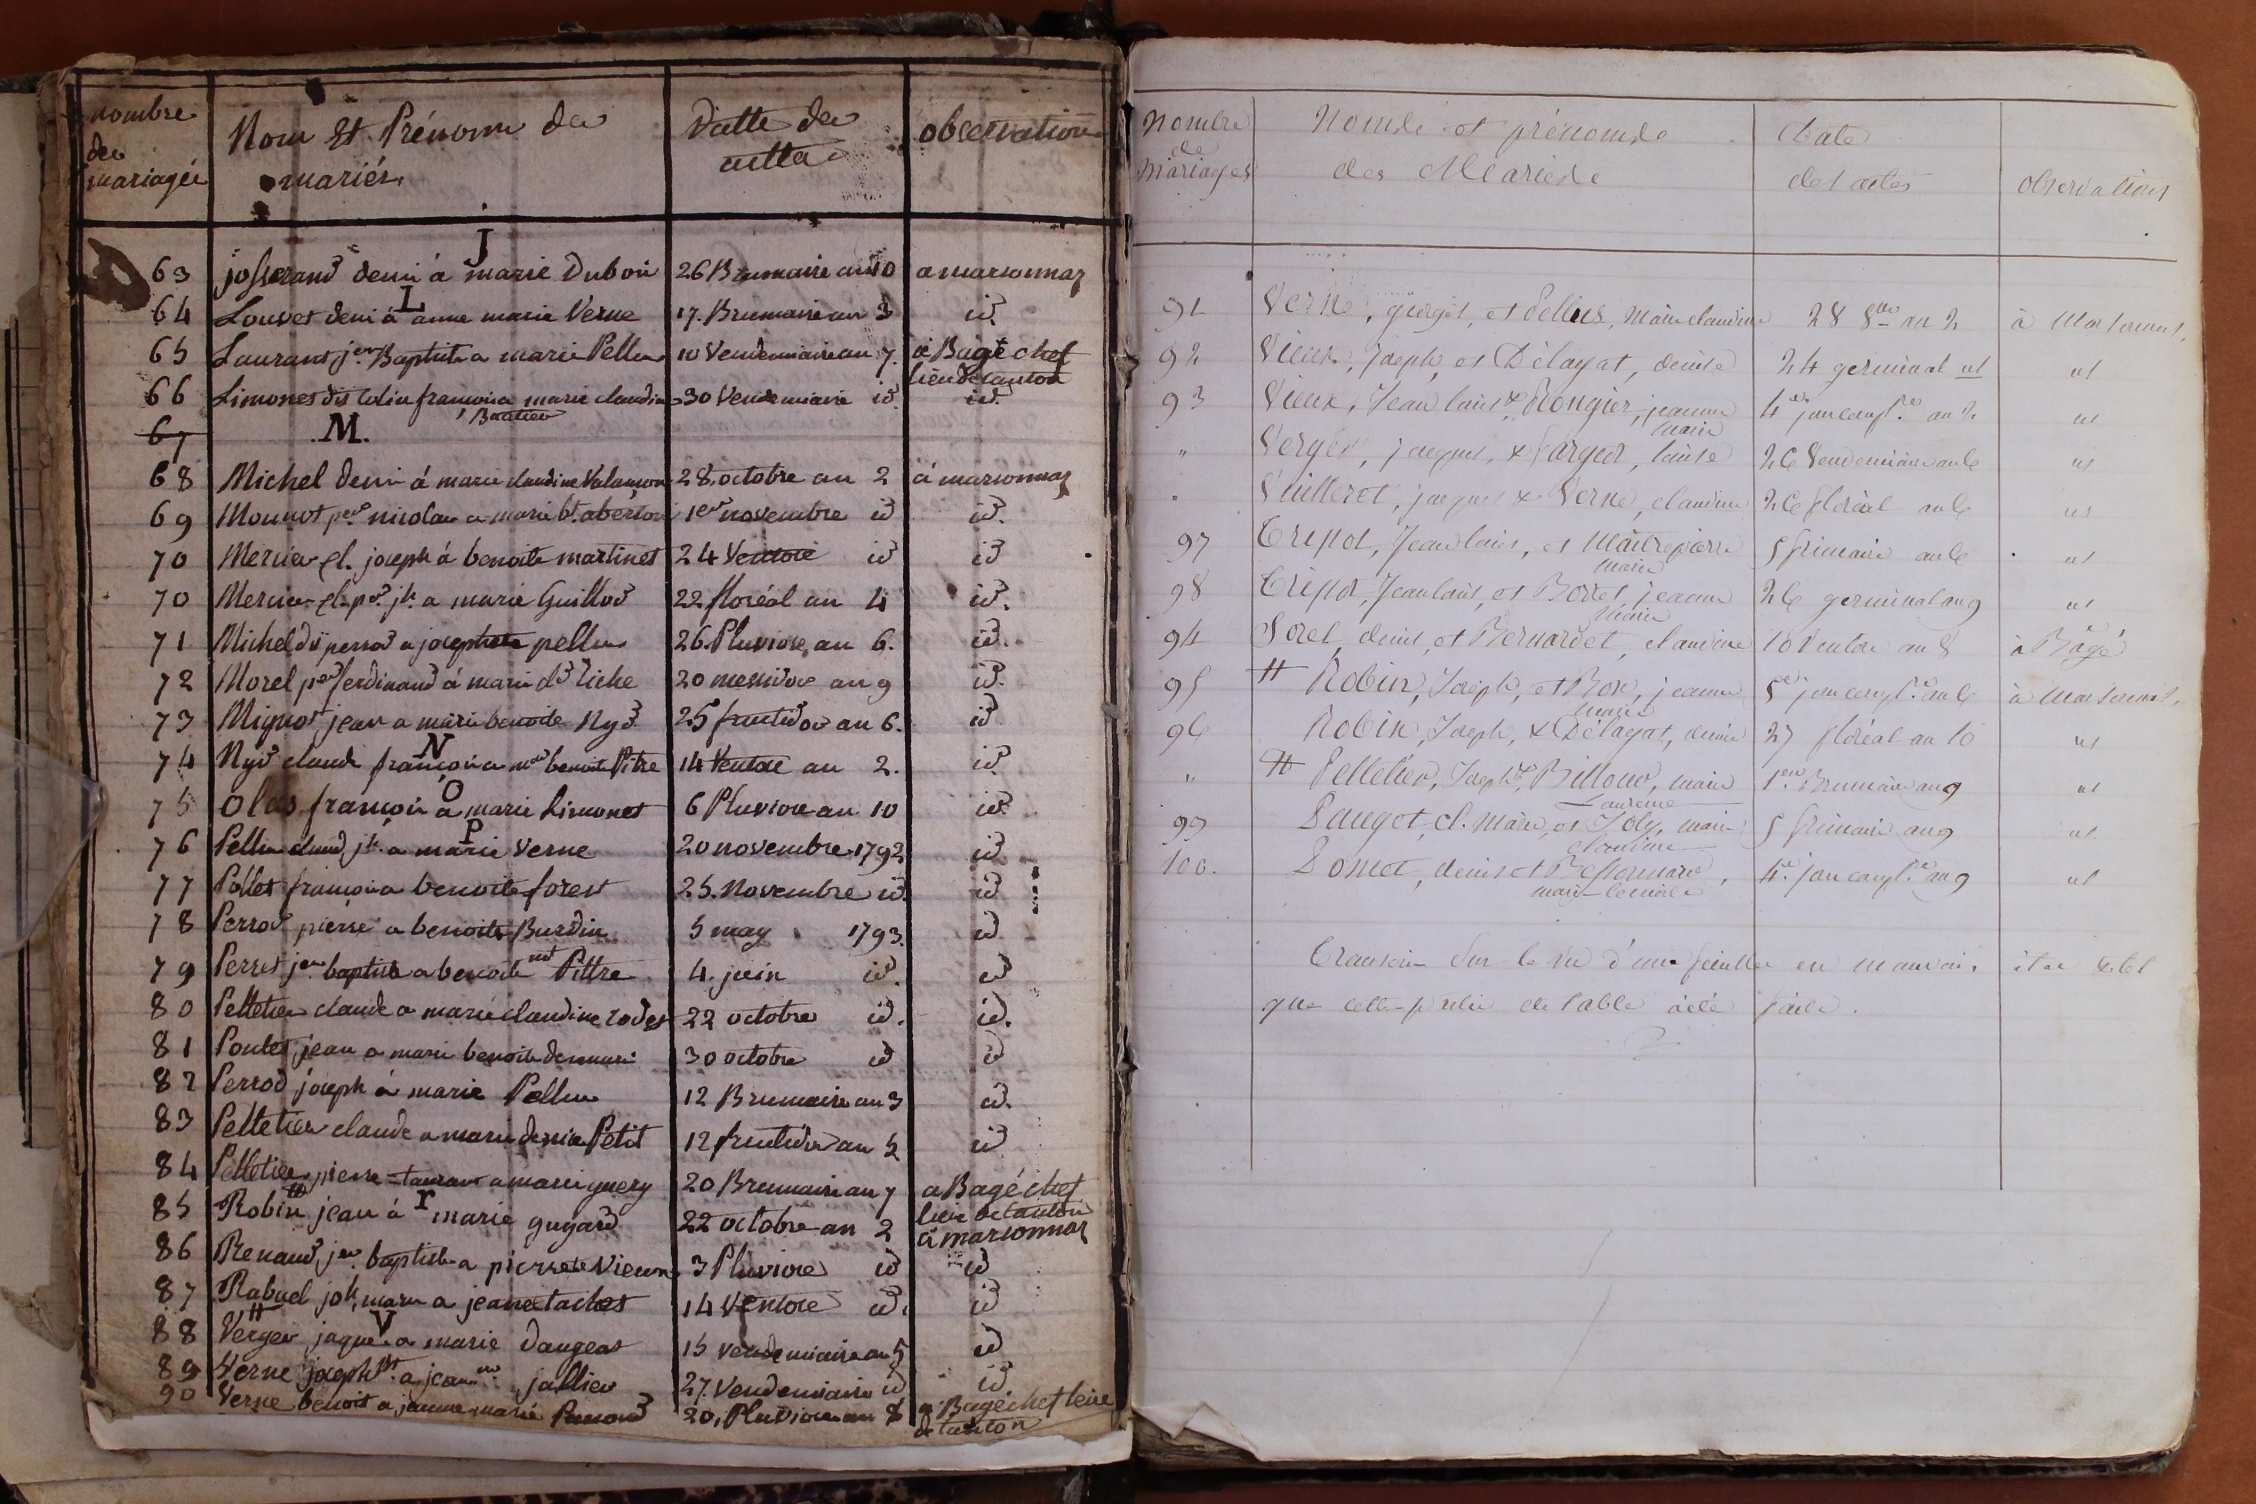 nombre
des
mariagés
Nom Et Prénom des
mariés
Datte des
actes
observation
J
63 josserand denis á marie Dubois 26 Brumaire an 10 a marsonnas
L
64 Louvet denis á anne marie Verne 17. Brumaire an 3 id.
65 Laurant jean Baptiste a marie Pellus 10 Vendemiaire an 7. á Bagé chef
lieu de canton
66 Limones dit Colin françois a marie claudine 30 Vendemiaire id. id.
67
M.
68 Michel denis á marie claudine 28. octobre an 2 á marsonnas
69 nicolas a marie 1er novembre id id.
70 Mercier cl. joseph á benoite martinet 24 Ventose id id
70 Mercier jh. a marie Guillod 22 floréal an 4 id.
71 Michel dit perrod a josephete pellus 26. Pluviose an 6. id.
72 Morel ferdinand á marie Riche 20 messidor an 9 id.
73 Mignot jean a marie benoite Nyd 25 fructidor an 6. id
N
74 Nyd claude françois a benoite Pitre 14 Ventose an 2. id.
O
75 françois á marie Limonet 6 Pluviose an 10 id.
P
76 Pellus claud. jh. a marie Verne 20 novembre 1792 id
77 Pollet françois a benoite forest 25. Novembre id. id
78 Perrod pierre a benoite Burdin 5 may 1793. id
79 Perret jean baptiste a benoite Pittre 4. juin id. id
80 Pelletier claude a marie claudine rodet 22 octobre id. id.
81 Poulet jean a marie benoite 30 octobre id id
82 Perrod joseph á marie Pellus 12 Brumaire an 3 id.
83 Pelletier claude a marie denise Petit 12 fructidor an 5 id
84 Pelletier pierre a marie guery 20 Brumaire an 7 a Bagé chef
lieu de canton
r
85 Robin jean á marie guyard 22 octobre an 2 á marsonnas
86 Renaud jean baptiste a pierrete Vieux 3 Pluviose id id
87 Rabuel marie a jeane 14 Ventose id. id
V
88 Verger jaque a marie Daugeat 15 vendemiaire an 5 id
89 Verne joseph a jeanne jallier 27. Vendemiaire id id.
90 Verne benoit a jeanne marie 20. Pluviose an 8 a Bagé chef leiu
de canton
Nombre
de
Mariages
Noms et prénoms
des Mariés
Date
des actes
observations
91 Verne, georges, et Pellus, marie claudine 28 8bre an 2 à Marsonnas
92 Vieux, Joseph, et Délayat, denise 24 germinal ut ut
93 Vieux, Jean louis & Rongier, jeanne 4e jour compl.re an 2 ut
marie
" Verger, jaques, & Fargeot, louise 26 Vendemiaire an 6 ut
Vuilleret, jaques & Verne, claudine 26 floréal an 6 ut
97 Tripot, Jean louis, et Maitrepierre 5 frimaire an 6 ut
marie
98 Tripot, Jean louis, et Borret, jeanne 26 germinal an 9 ut
marie
94 Sorel, denis, et Bernardet, claudine 10 Ventose an 8 à Bâgé
95 Robin, Joseph, et Bon, jeanne 5e jour compl.re an 6 à Marsonnas
marie
96 Robin, Joseph, & Délayat, denise 27 floréal an 10 ut
" Pelletier, Joseph, & Billoud, marie 1er Brumaire an 9 ut
Laurence
99 Paugot, cl. marie, et Joly, marie 5 frimaire an 9 ut
claudine
100. Ponset, denis et 4e jour compl.re an 9 ut
marie
Transcrit sur le vu d'une feuille en mauvais état
que cette partie de table a été faite.